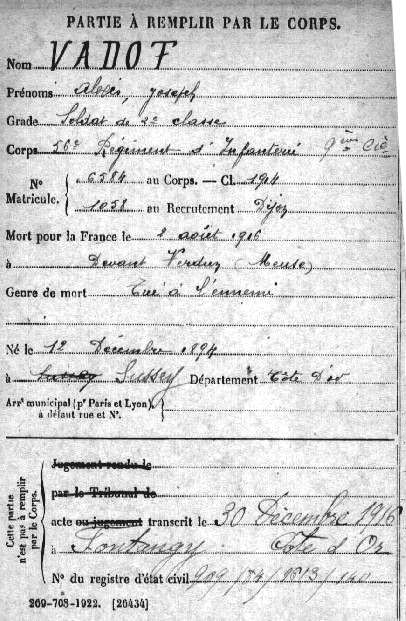 PARTIE À REMPLIR PAR LE CORPS.
Nom VADOT
Prénoms Alexis, Joseph
Grade Soldat de 2e classe
Corps 56e Régiment d'Infanterie 9ème Cie
N° Matricule. 6584 au Corps. — Cl. 1914
1058 au Recrutement Dijon
Mort pour la France le 2 août 1916
à Devant Verdun (Meuse)
Genre de mort Tué à l'ennemi
Né le 12 Décembre 1894
à Sussey Département Côte D'or
Arrt municipal (pr Paris et Lyon),
à défaut rue et N°.
Cette partie n'est pas à remplir par le Corps.
Jugement rendu le
par le Tribunal de
acte ou jugement transcrit le 30 Décembre 1916
à Fontangy Côte d'Or
N° du registre d'état civil
269-708-1922. [26434]